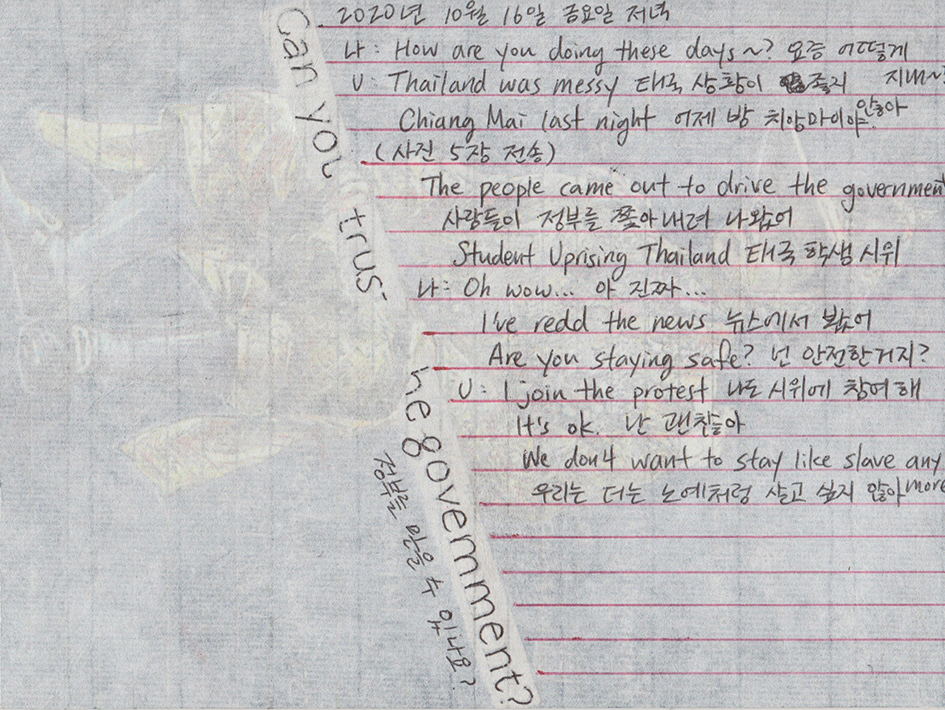 2020년 10월 16일 금요일 저녁
나: How are you doing these days~? 요즘 어떻게 지내~?
U: Thailand was messy 태국 상황이 좋지 않아
Chiang Mai last night 어제 밤 치앙마이야.
(사진 5장 전송)
The people came out to drive the government
사람들이 정부를 쫓아내려 나왔어
Student Uprising Thailand 태국 학생 시위
나: Oh wow... 아 진짜...
I've redd the news 뉴스에서 봤어
Are you staying safe? 넌 안전한거지?
U: I join the protest 나도 시위에 참여해
It's ok. 난 괜찮아
We don4 want to stay like slave any more
우리는 더는 노예처럼 살고 싶지 않아
Can you trus he government?
정부를 믿을 수 있나요?